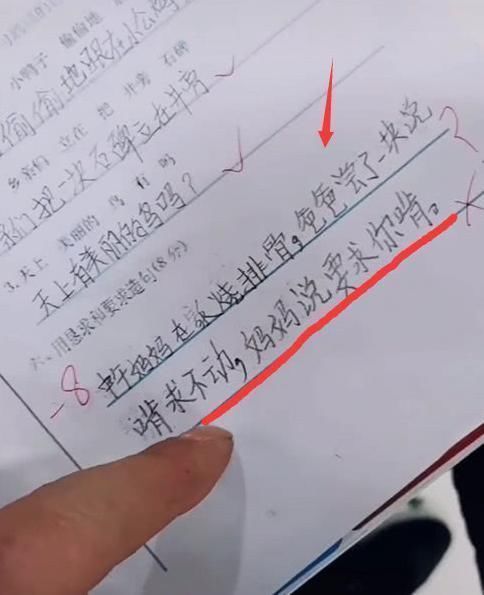 小鸭子 偷偷地
偷偷地跟在小
乡亲们 立在 把 井旁 石碑
我们把一次石碑立在井旁
3.天上 美丽的 鸟 有 吗
天上有美丽的鸟吗?
六、用恳求和要求造句(8分)
-8
中午妈妈在家烧排骨,爸爸尝了一块说
啃求不动,妈妈说要求你啃。